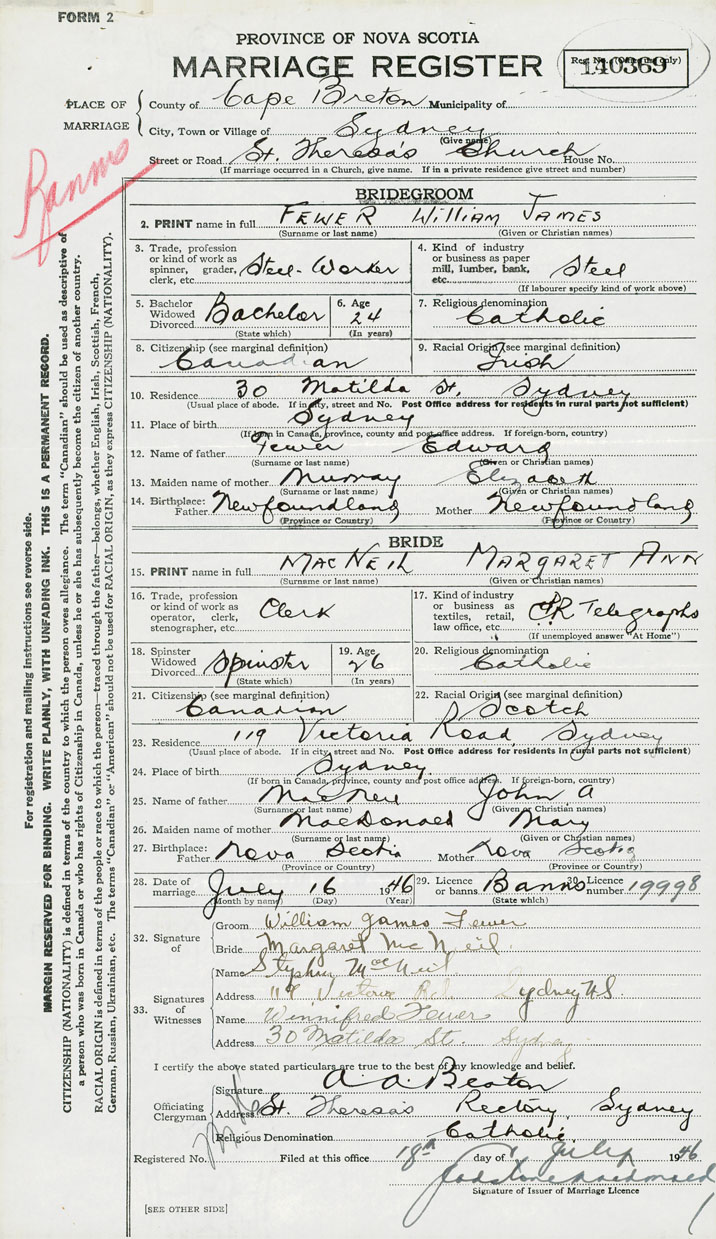 FORM 2
PROVINCE OF NOVA SCOTIA
MARRIAGE REGISTER
Reg. No. (Office use only)
140369
PLACE OF MARRIAGE
County of Cape Breton Municipality of
City, Town or Village of Sydney
(Give name)
Street or Road St. Theresa's Church House No.
(If marriage occurred in a Church, give name. If in a private residence give street and number)
Banns
BRIDEGROOM
2. PRINT name in full FEWER WILLIAM JAMES
(Surname or last name) (Given or Christian names)
3. Trade, profession or kind of work as spinner, grader, clerk, etc. Steel-Worker
4. Kind of industry or business as paper mill, lumber, bank, etc. Steel
(If labourer specify kind of work above)
5. Bachelor Widowed Divorced Bachelor (State which)
6. Age 24 (In years)
7. Religious denomination Catholic
8. Citizenship (see marginal definition) Canadian
9. Racial Origin (see marginal definition) Irish
10. Residence 30 Matilda St. Sydney
(Usual place of abode. If in city, street and No. Post Office address for residents in rural parts not sufficient)
11. Place of birth Sydney
(If born in Canada, province, county and post office address. If foreign-born, country)
12. Name of father Fewer Edward
(Surname or last name) (Given or Christian names)
13. Maiden name of mother Murray Elizabeth
(Surname or last name) (Given or Christian names)
14. Birthplace: Father Newfoundland Mother Newfoundland
(Province or Country) (Province or Country)
BRIDE
15. PRINT name in full MACNEIL MARGARET ANN
(Surname or last name) (Given or Christian names)
16. Trade, profession or kind of work as operator, clerk, stenographer, etc. Clerk
17. Kind of industry or business as textiles, retail, law office, etc. Telegraphs
(If unemployed answer "At Home")
18. Spinster Widowed Divorced Spinster (State which)
19. Age 26 (In years)
20. Religious denomination Catholic
21. Citizenship (see marginal definition) Canadian
22. Racial Origin (see marginal definition) Scotch
23. Residence 119 Victoria Road, Sydney
(Usual place of abode. If in city, street and No. Post Office address for residents in rural parts not sufficient)
24. Place of birth Sydney
(If born in Canada, province, county and post office address. If foreign-born, country)
25. Name of father MacNeil John A
(Surname or last name) (Given or Christian names)
26. Maiden name of mother MacDonald Mary
(Surname or last name) (Given or Christian names)
27. Birthplace: Father Nova Scotia Mother Nova Scotia
(Province or Country) (Province or Country)
28. Date of marriage July 16 1946
(Month by name) (Day) (Year)
29. Licence or banns Banns (State which)
30. Licence number 19998
32. Signature of
Groom William James Fewer
Bride Margaret McNeil
33. Signatures of Witnesses
Name Stephen MacNeil
Address 119 Victoria Rd. Sydney N.S.
Name Winnifred Fewer
Address 30 Matilda St. Sydney
I certify the above stated particulars are true to the best of my knowledge and belief.
Officiating Clergyman
Signature A. A. Beaton
Address St. Theresa's Rectory, Sydney
Religious Denomination Catholic
Registered No. Filed at this office 18th day of July 1946
Signature of Issuer of Marriage Licence
[SEE OTHER SIDE]
For registration and mailing instructions see reverse side.
MARGIN RESERVED FOR BINDING. WRITE PLAINLY, WITH UNFADING INK. THIS IS A PERMANENT RECORD.
CITIZENSHIP (NATIONALITY) is defined in terms of the country to which the person owes allegiance. The term "Canadian" should be used as descriptive of
a person who was born in Canada or who has rights of Citizenship in Canada, unless he or she has subsequently become the citizen of another country.
RACIAL ORIGIN is defined in terms of the people or race to which the person—traced through the father—belongs, whether English, Irish, Scottish, French,
German, Russian, Ukrainian, etc. The terms "Canadian" or "American" should not be used for RACIAL ORIGIN, as they express CITIZENSHIP (NATIONALITY).